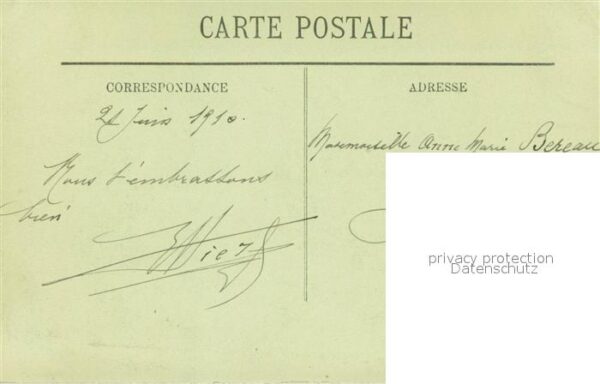 CARTE POSTALE
CORRESPONDANCE
21 Juin 1910.
Nous t'embrassons
bien
ADRESSE
Mademoiselle Anne Marie Bereau
privacy protection
Datenschutz